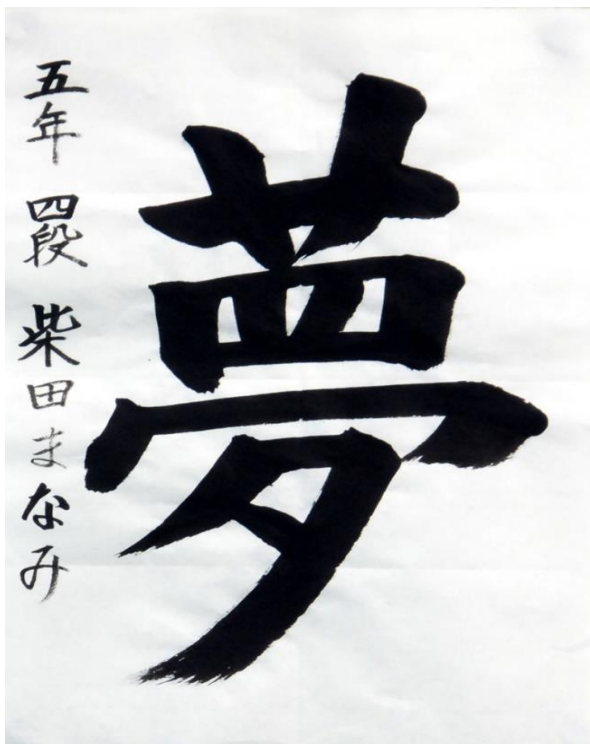 夢
五年 四段 柴田まなみ